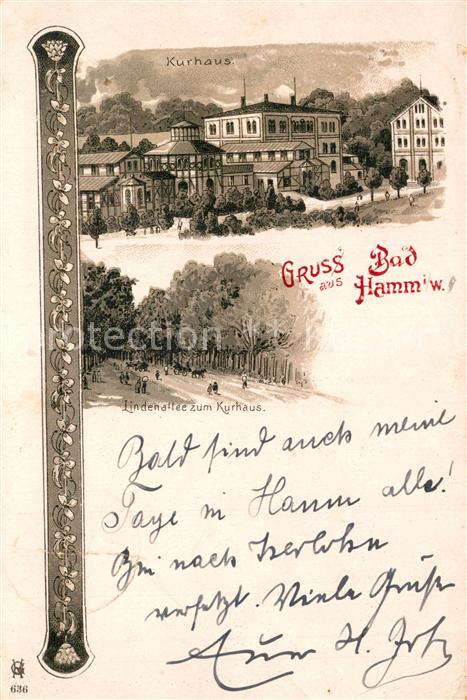 Kurhaus.
Gruss aus Bad Hamm i/w.
Lindenallee zum Kurhaus.
Bald sind auch meine
Tage in Hamm alle!
Bin nach Iserlohn
versetzt. Viele Grüße
Euer H.
636